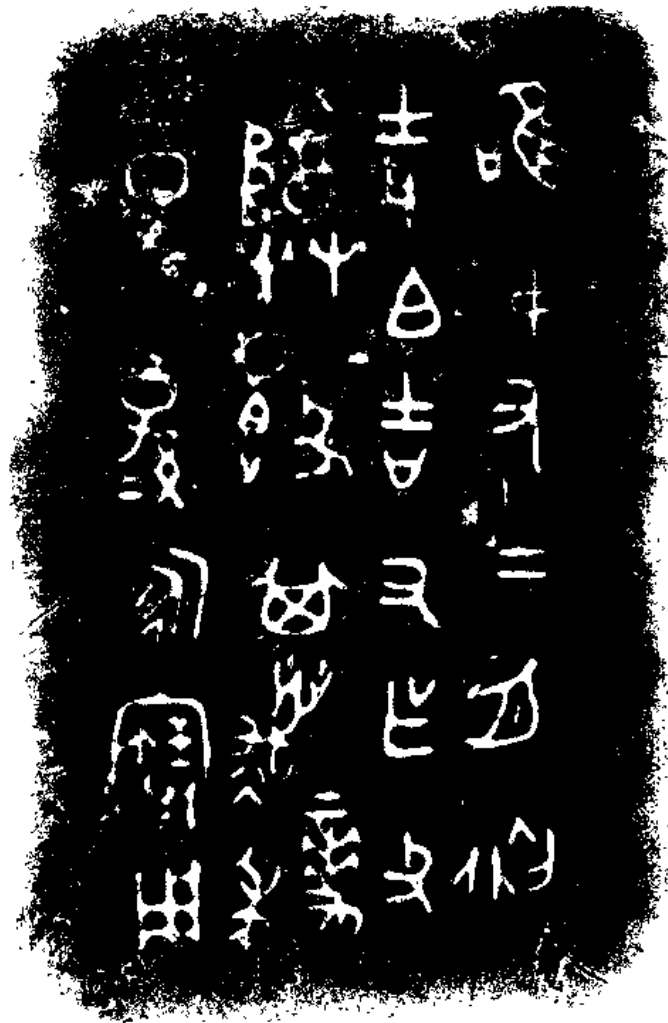 唯十又二月初
吉白吉父乍毅
尊簋其萬年
子＝孫＝永寶用